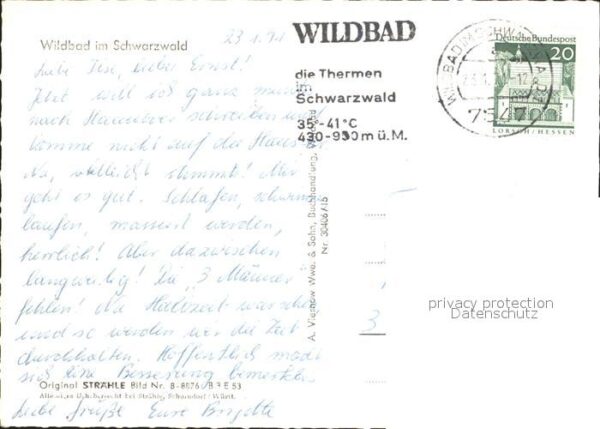 23.1.71
Wildbad im Schwarzwald
Liebe Ilse, lieber Ernst!
Jetzt will ich ganz
nach schreiben und
komme nicht auf die
Na, vielleicht stimmt! Mir
geht es gut. Schlafen, schwimmen
laufen, massiert werden,
herrlich! Aber dazwischen
langweilig! Die "3 Männer"
fehlen! Na Halbzeit war schon
und so werden wir die Zeit
durchhalten. Hoffentlich macht
sich eine Besserung bemerkbar
Original STRÄHLE Bild Nr. B-8876/B 3 E 53
Alleiniges Urh. bei Strähle, Schorndorf/Württ.
Liebe Grüße Eure Brigitte
WILDBAD
die Thermen
im
Schwarzwald
35°-41°C
430-930m ü.M.
A. Viesnow Wwe. & Sohn, Buchhandlung,
Nr. 30406/15
WILDBAD IM SCHWARZWALD
Deutsche Bundespost
20
LORSCH/HESSEN
3
privacy protection
Datenschutz